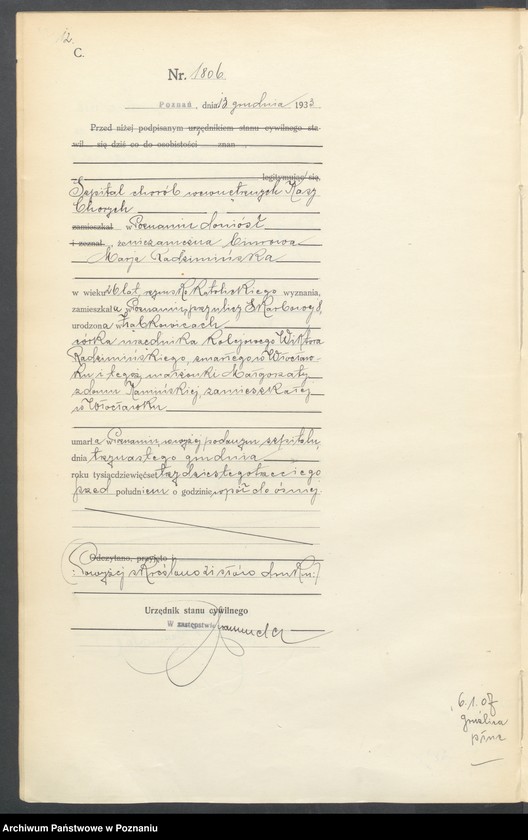 12.
C.
Nr. 1806
Poznań, dnia 13 grudnia 1933
Przed niżej podpisanym urzędnikiem stanu cywilnego sta-
wił się dziś co do osobistości znan
legitymując się,
Szpital chorób wewnętrznych Kasy
Chorych
zamieszkał w Poznaniu doniósł
i zeznał, że niezamężna biurowa
Marja Radzimińska
w wieku 26 lat, rzymsko katolickiego wyznania,
zamieszkała w Poznaniu, przy ulicy Skarbowej 8,
urodzona w
córka urzędnika kolejowego Wiktora
Radzimińskiego, zmarłego w Włocław-
ku i tegoż małżonki Małgorzaty
z domu Kamińskiej, zamieszkałej
w Włocławku
umarła w Poznaniu, wyżej podanym szpitalu,
dnia trzynastego grudnia
roku tysiącdziewięćset trzydziestego trzeciego
przed południem o godzinie wpół do ósmej.
Odczytano, przyjęto i
Powyżej skreślono słów druku:
Urzędnik stanu cywilnego
W zastępstwie
6.1.07
Archiwum Państwowe w Poznaniu